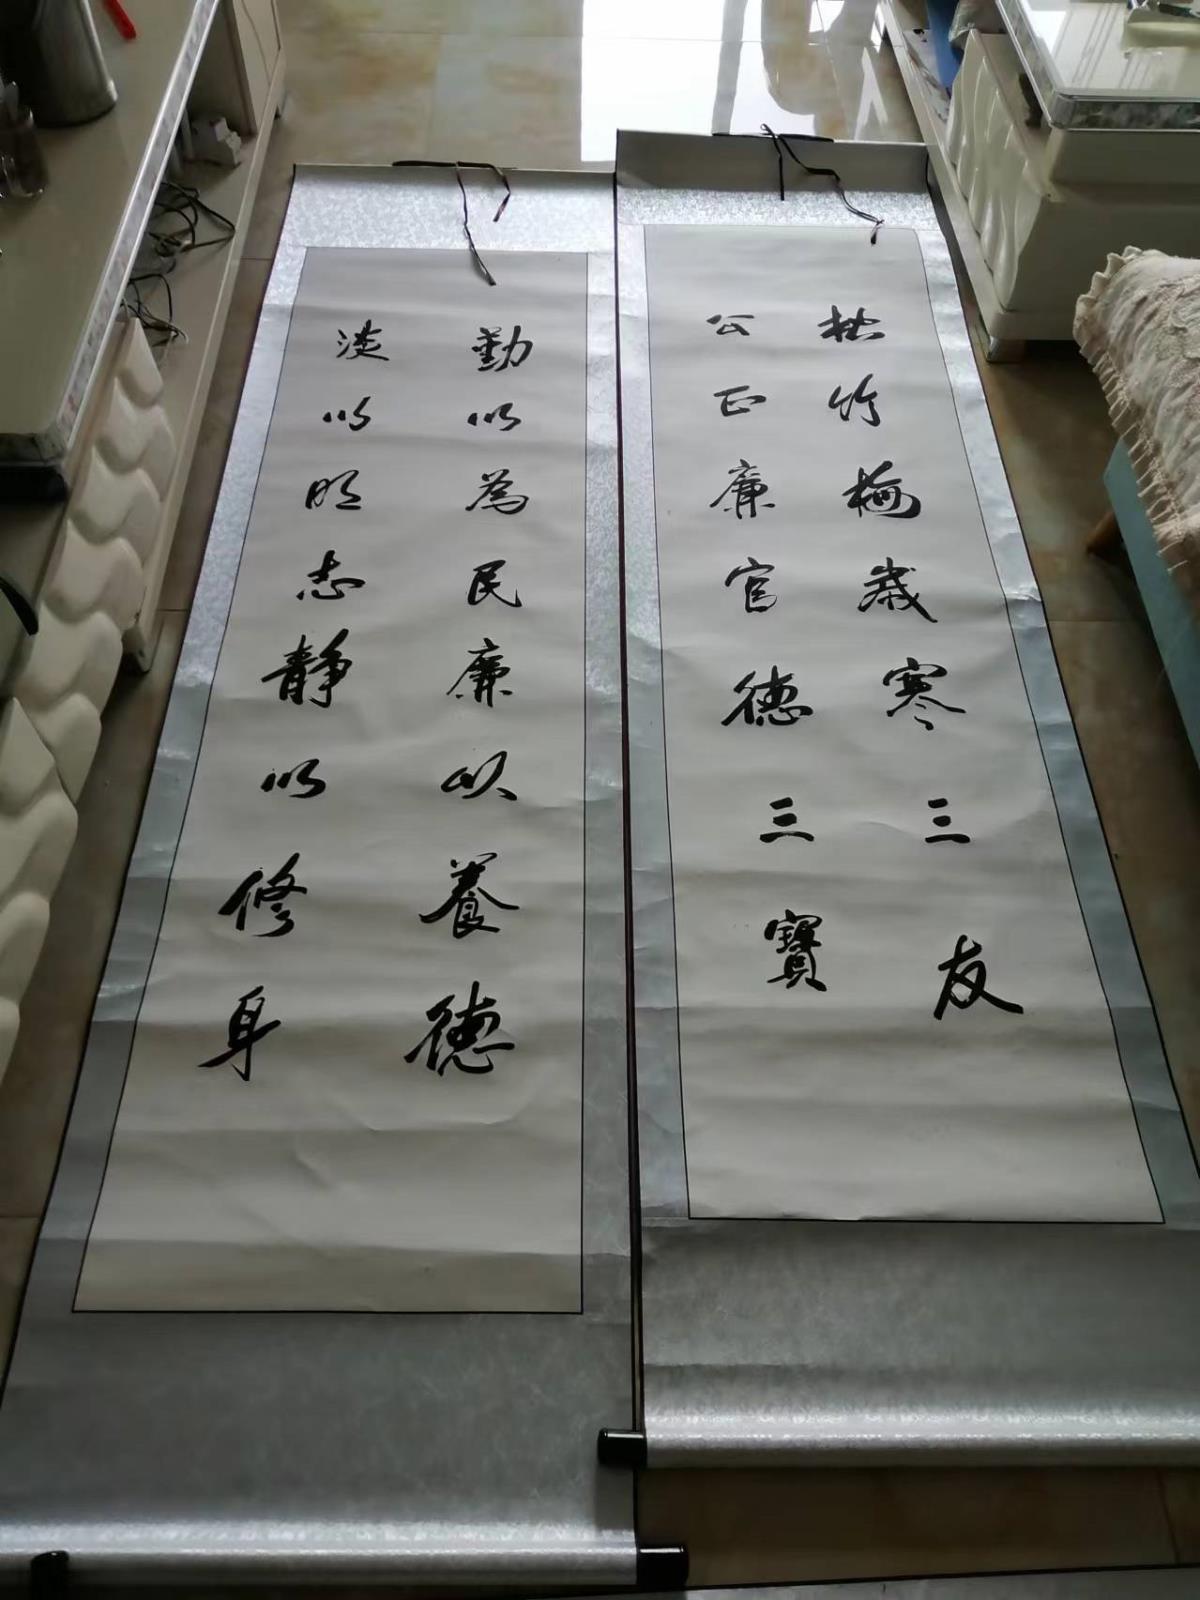 松竹梅歲寒三友
公正廉官德三寶
勤以為民廉以養德
淡以明志靜以修身